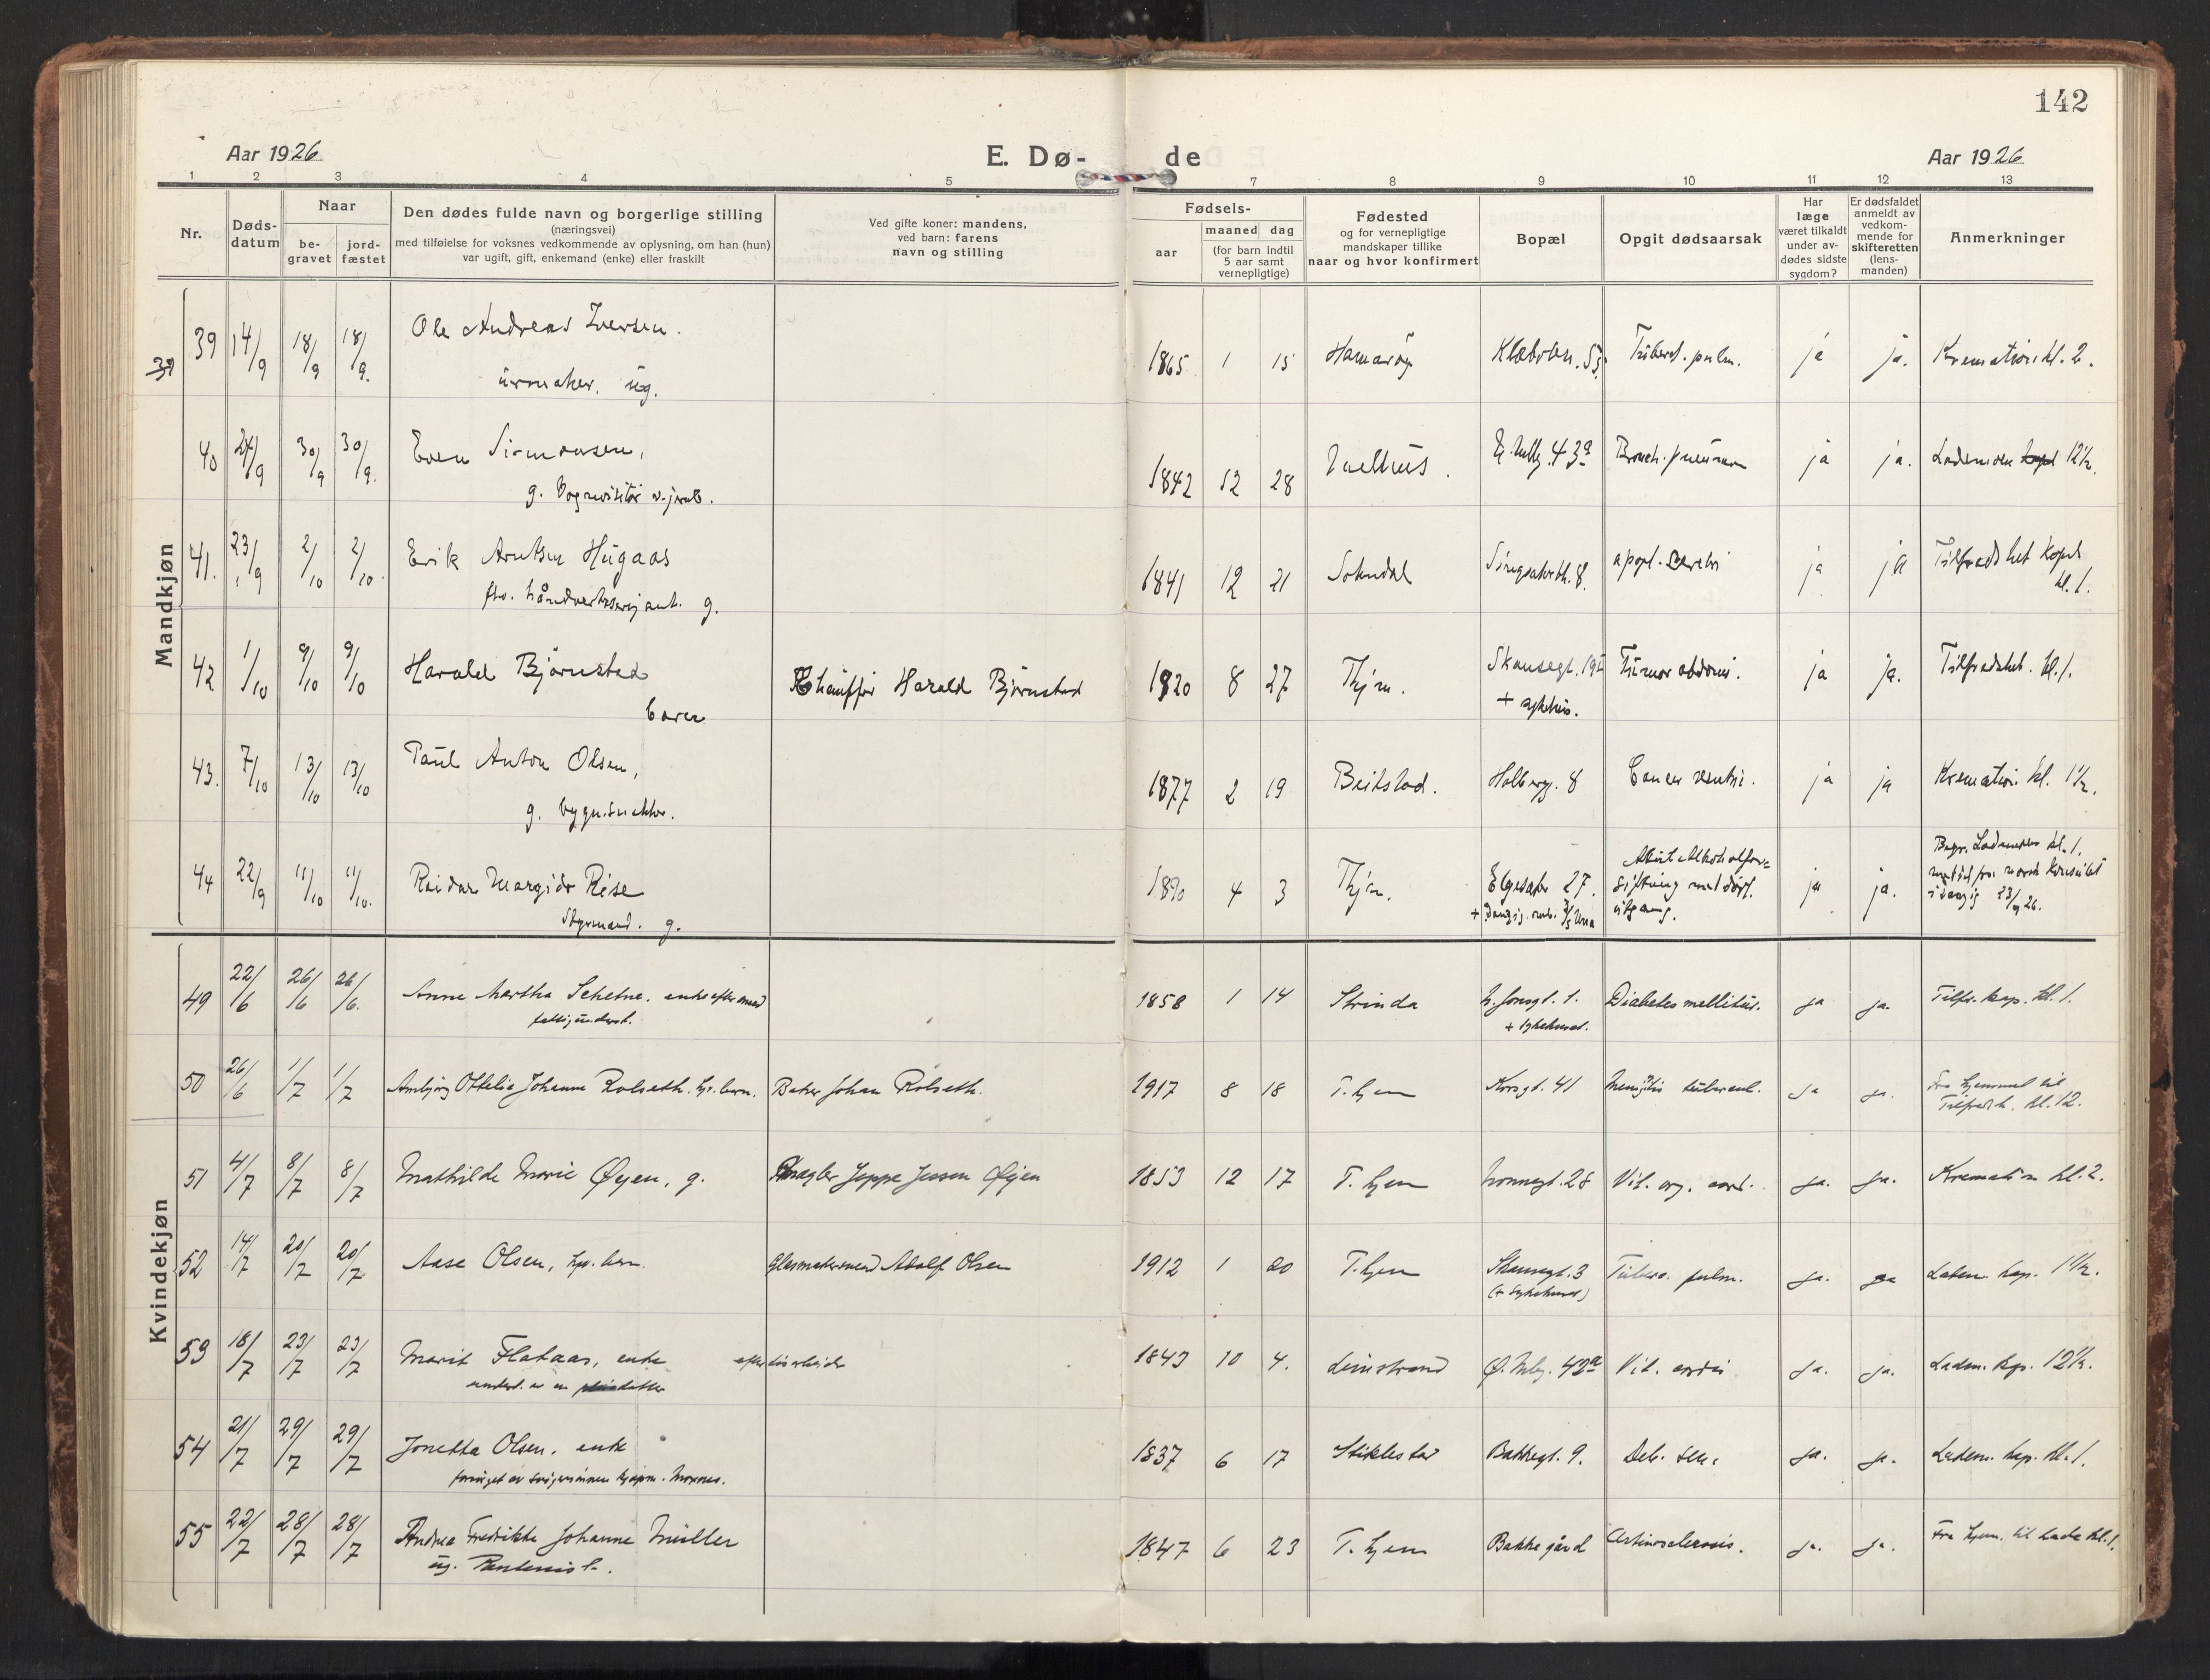 142
Aar 1926
E. Dø-
de
Aar 1926
1 2 3 4 5 7 8 9 10 11 12 13
Nr.
Døds-
datum
Naar
be-
gravet
jord-
fæstet
Den dødes fulde navn og borgerlige stilling
(næringsvei)
med tilføielse for voksnes vedkommende av oplysning, om han (hun)
var ugift, gift, enkemand (enke) eller fraskilt
Ved gifte koner: mandens,
ved barn: farens
navn og stilling
Fødsels-
aar
maaned dag
(for barn indtil
5 aar samt
vernepligtige)
Fødested
og for vernepligtige
mandskaper tillike
naar og hvor konfirmert
Bopæl
Opgit dødsaarsak
Har
læge
været tilkaldt
under av-
dødes sidste
sygdom?
Er dødsfaldet
anmeldt av
vedkom-
mende for
skifteretten
(lens-
manden)
Anmerkninger
Mandkjøn
39 39 14/9 18/9 18/9. Ole Andreas Iversen.
urmaker. ug.
1865 1 15 Hamarøy Tuberk. pulm. ja ja. Kremation kl. 2.
40 24/9 30/9 30/9. Even Simonsen,
g. Vognvisitør v. jernb.
1842 12 28 43a Bronch. pneumon ja ja. Lademoen kapel 12½.
41. 23/9 2/10 2/10. Erik Arntsen Hugaas
g.
1841 12 21 Sokndal 8. apopl. cerebri ja ja Tilfredshet Kapel
kl. 1.
42 1/10 9/10 9/10 Harald Bjørnstad
barn
Chauffør Harald Bjørnstad
1920 8 27 Thjm. Skansegt. 19
+ sykehus.
Tumor abdom. ja ja. Tilfredshet. kl. 1.
43. 7/10 13/10 13/10 Paul Anton Olsen,
g. bygn.snekker.
1877 2 19 Beitstad. Holbergg. 8 Cancer ventri. ja ja Kremation. kl. 1½.
44 22/9 11/10 11/10. Reidar Margido Riise
Styrmand. g.
1890 4 3 Thjm. Elgesæter 27.
Akut Alkoholfor=
giftning med dødl.
utgang.
ja ja. Begr. Lademoen kl. 1.
norsk konsulat
23/9 26.
Kvindekjøn
49 22/6 26/6 26/6. Anne Martha Schetne. enke efter smed
fattigunderst.
1858 1 14 Strinda
+ sykehuset.
Diabetes mellitus. ja ja. Tilfr. kap. kl. 1.
50 26/6 1/7 1/7 Ambjørg Ottelia Johanne Rolseth. hj. barn.
Baker Johan Rolseth.
1917 8 18 T.hjem Korsgt. 41 Meningitis tubercul. ja ja. Fra hjemmet til
Tilfredsh. kl. 12.
51 4/7 8/7 8/7 Mathilde Marie Øyen, g.
Mægler Jeppe Jensen Øyen
1853 12 17 T. hjem Nonnegt. 28 Vit. org. cord. ja. ja. Kremation kl. 2.
52 14/7 20/7 20/7 Aase Olsen, hj. barn.
Glasmakersvend Adolf Olsen
1912 1 20 T.hjem Skansegt. 3
(+ Sykehuset)
Tuberc. pulm. ja. ja Ladem. kap. 1½.
53 18/7 23/7 23/7 Marit Flataas, enke efter løsarbeider
underst. av en datter
1843 10 4. Leinstrand Ø. Mbg. 42a Vit. cordis ja. ja. Ladem. kap. 12½.
54 21/7 29/7 29/7 Jonetta Olsen. enke
forsørget av svigersønnen
1837 6 17 Stiklestad Bakkegt. 9. Deb. sen. ja. ja. Ladem. kap. kl. 1.
55 22/7 28/7 28/7 Andrea Fredrikke Johanne Müller
ug.
1847 6 23 T. hjem Bakkegård Arteriosclerosis. ja. ja. Fra hjem. til Lade kl. 1.